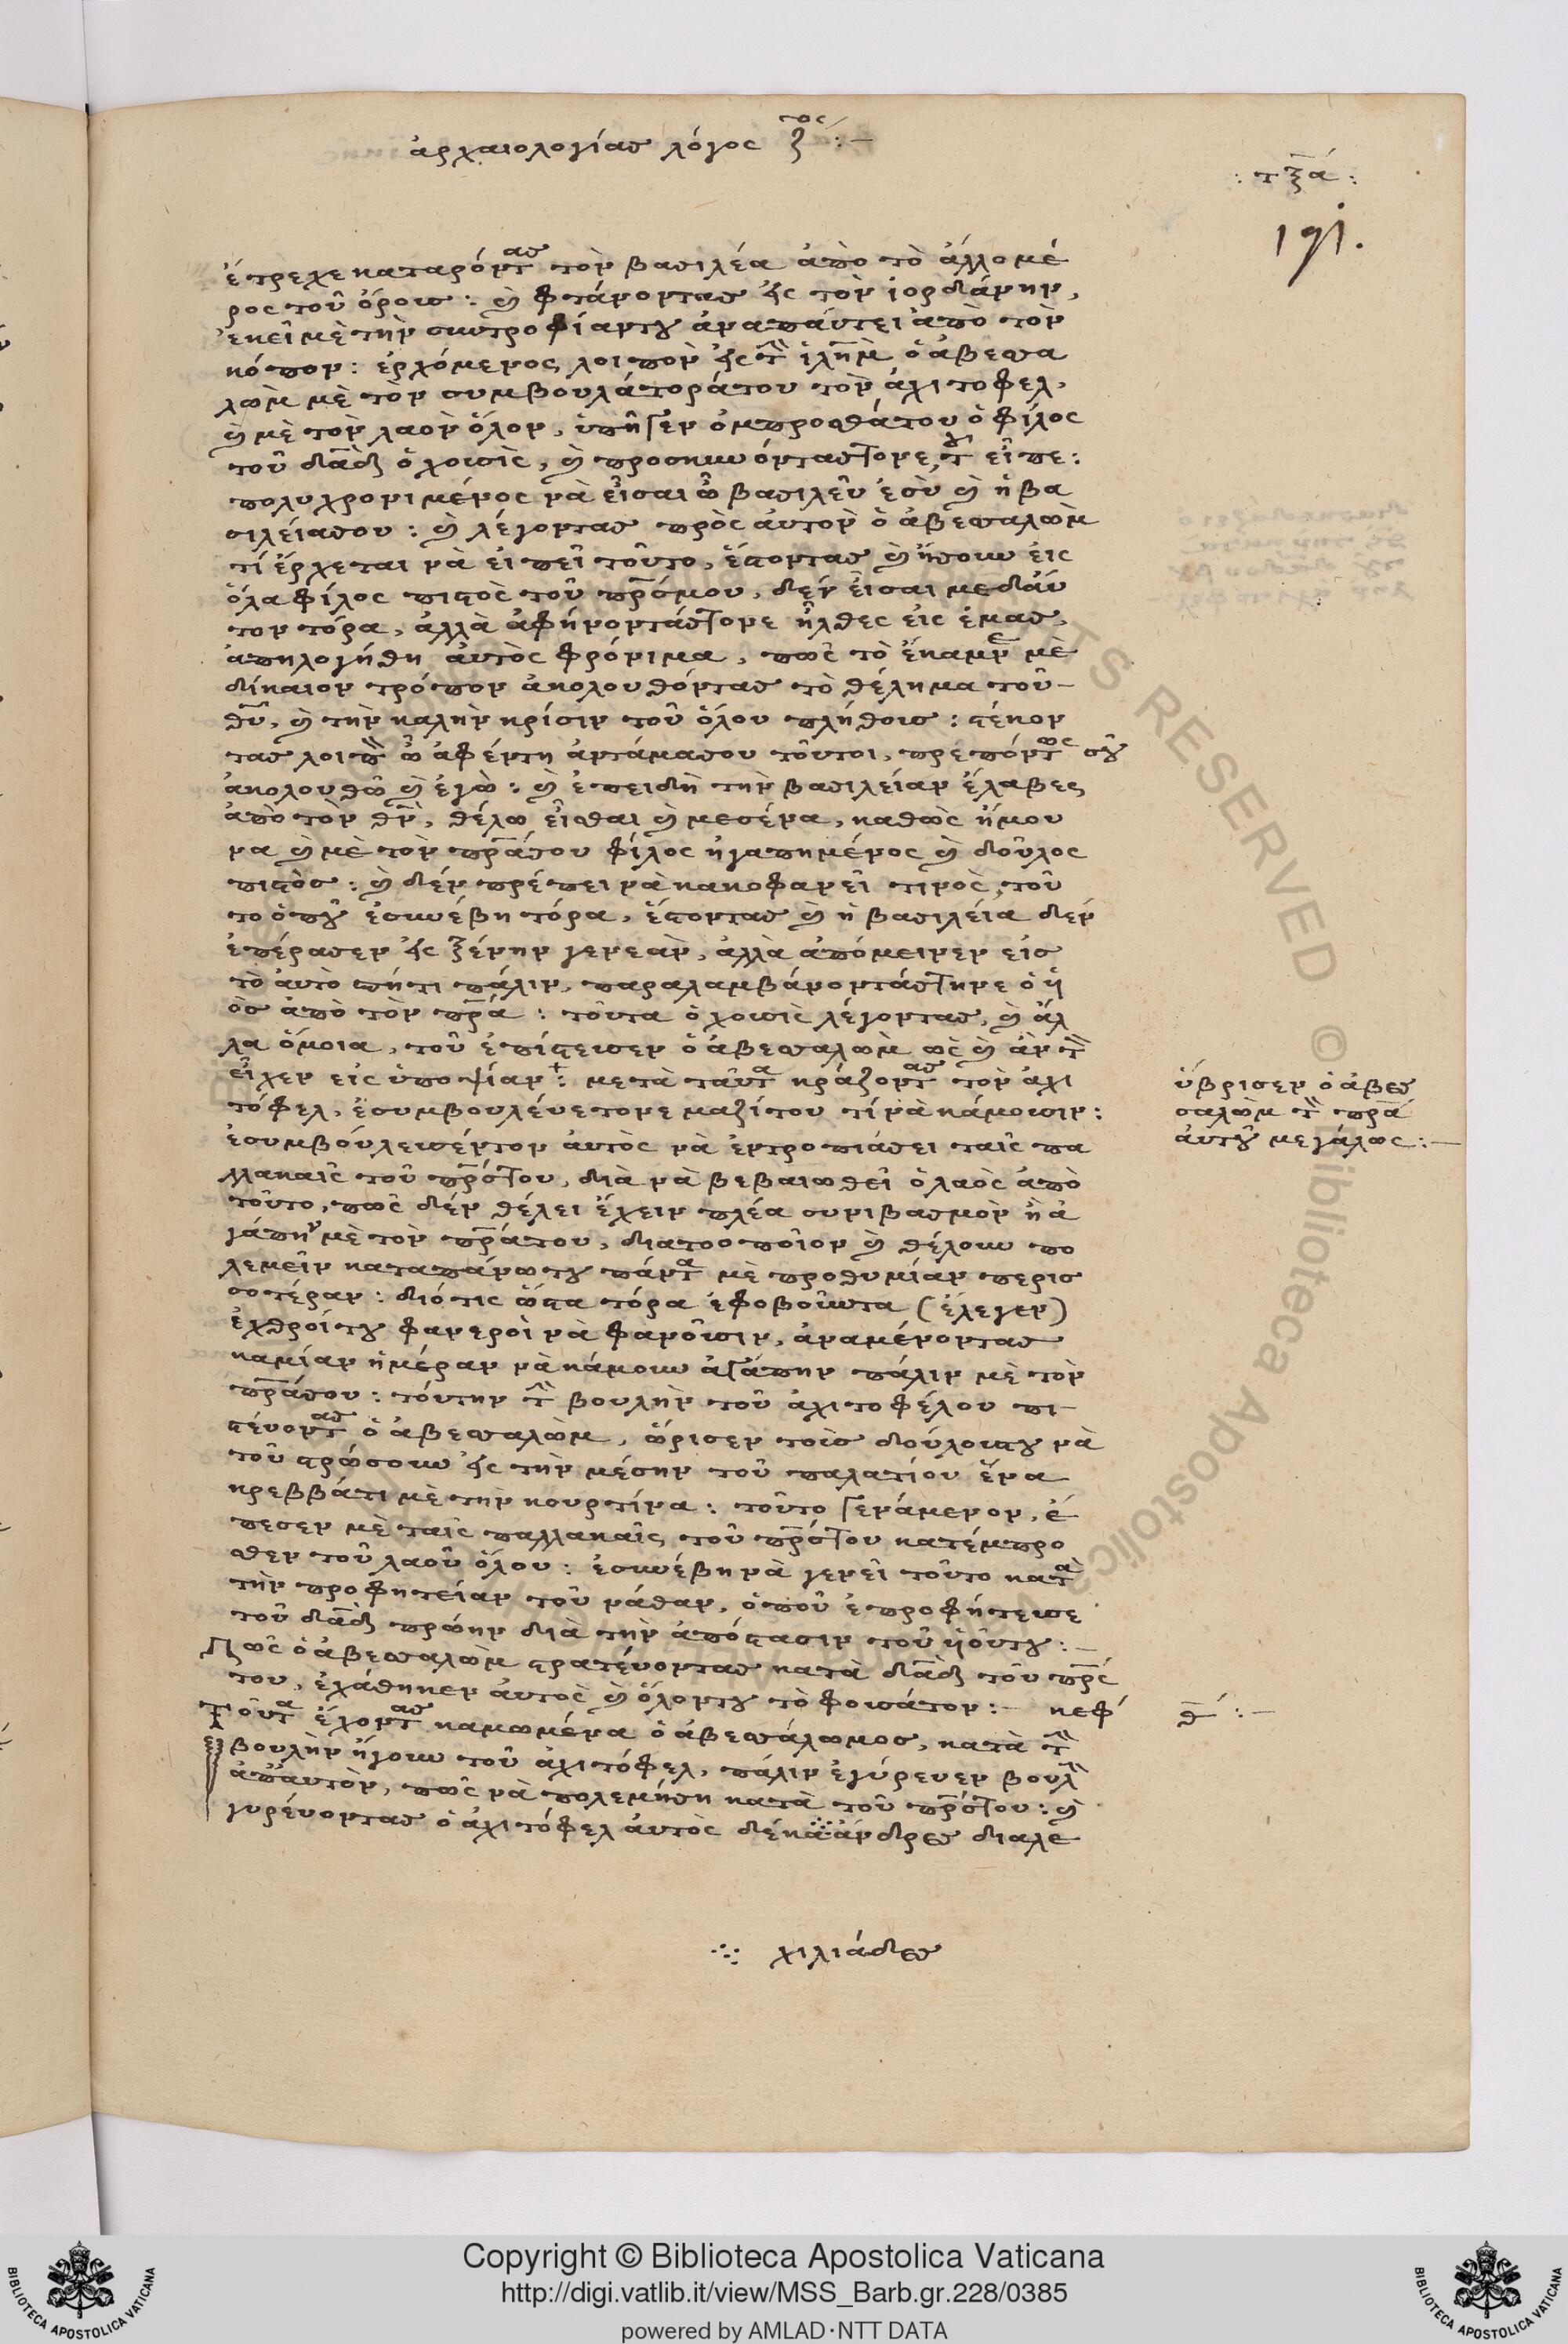 ἀρχαιολογίας λόγος ζος :—
: τξά :
191.
ἔτρεχε καταρόντας τὸν βασιλέα ἀπὸ τὸ ἄλλο μέ
ρος τοῦ ὄρους : καὶ φτάνοντας εἰς τὸν ἰορδάνην,
ἐκεῖ μὲ τὴν συντροφίαν του ἀναπαύτει ἀπὸ τὸν
κόπον : ἐρχόμενος λοιπὸν εἰς τὴν ἱλῆμ ὁ ἀβεσσα
λὼμ μὲ τὸν συμβουλάτορά του τὸν ἀχιτοφελ,
καὶ μὲ τὸν λαὸν ὅλον, ὑπῆγεν ὀμπροσθά του ὁ φίλος
τοῦ δαδ ὁ χουσὶς, καὶ προσκυνόντας τονε, του εἶπε :
πολυχρονιμένος νὰ εἶσαι ὦ βασιλεῦ ἐσὺ καὶ ἡ βα
σιλεία σου : καὶ λέγοντας πρὸς αὐτὸν ὁ ἀβεσσαλὼμ
τί ἔρχεται νὰ εἰπεῖ τοῦτο, ἔστοντας καὶ ἤσουν εἰς
ὅλα φίλος πιστὸς τοῦ πρσμου, δὲν εἶσαι με δαῦ
τον τόρα, ἀλλὰ ἀφήνοντάς τονε ἦλθες εἰς ἐμᾶς,
ἀπηλογήθη αὐτὸς φρόνιμα, πῶς τὸ ἔκαμνε μὲ
δίκαιον τρόπον ἀκολουθόντας τὸ θέλημα τοῦ —
θῦ, καὶ τὴν καλὴν κρίσιν τοῦ ὅλου πλήθους : στέκον
τας λοιπὸν ὦ ἀφέντη ἀντάμα σου τοῦτοι, πρεπόντως σοῦ
ἀκολουθῶ καὶ ἐγὼ : καὶ ἐπειδὴ τὴν βασιλείαν ἔλαβες
ἀπὸ τὸν θν, θέλω εἶσθαι καὶ με σένα, καθὼς ἤμου
να καὶ μὲ τὸν πρα σου φίλος ἠγαπημένος καὶ δοῦλος
πιστὸς : καὶ δὲν πρέπει νὰ κακοφανεῖ τινὸς, τοῦ
το ὁποῦ ἐσυνέβη τόρα, ἔστοντας καὶ ἡ βασιλεία δὲν
ἐπέρασεν εἰς ξένην γενεὰν, ἀλλὰ ἀπόμεινεν εἰς
τὸ αὐτὸ σπήτι πάλιν, παραλαμβάνοντάς τηνε ὁ ὑ
ὸς ἀπὸ τὸν πρα : τοῦτα ὁ χουσὶς λέγοντας, καὶ ἄλ
λα ὅμοια, τοῦ ἐπίστευσεν ὁ ἀβεσσαλὼμ ὡς καὶ ἂν τὸν
εἶχεν εἰς ὑποψίαν+ : μετὰ ταῦτα κράζοντας τὸν ἀχι
τόφελ, ἐσυμβουλεύετονε μαζί του τί νὰ κάμουσιν :
ἐσυμβούλευσέν τον αὐτὸς νὰ ἐντροπιάσει ταῖς πα
λλακαῖς τοῦ πρς του, διὰ νὰ βεβαιωθεῖ ὁ λαὸς ἀπὸ
τοῦτο, πῶς δὲν θέλει ἔχειν πλέα συνιβασμὸν ἢ ἀ
γάπην μὲ τὸν πρα του, διατοοποῖον καὶ θέλουν πο
λεμεῖν καταπάνω του πάντα μὲ προθυμίαν περισ
σοτέραν : διότις ὥστα τόρα ἐφοβοῦντα (ἔλεγεν)
ἐχθροί του φανεροὶ νὰ φανοῦσιν, ἀναμένοντας
καμίαν ἡμέραν νὰ κάμουν ἀγάπην πάλιν μὲ τὸν
πρα σου : τούτην τὴν βουλὴν τοῦ ἀχιτοφέλου πι
στεύοντας ὁ ἀβεσσαλὼμ, ὥρισεν τοὺς δούλους του νὰ
τοῦ στρώσουν εἰς τὴν μέσην τοῦ παλατίου ἕνα
κρεββάτι μὲ τὴν κουρτίνα : τοῦτο γενάμενον, ἔ
πεσεν μὲ ταῖς παλλακαῖς τοῦ πρς του κατέμπρο
σθεν τοῦ λαοῦ ὅλου : ἐσυνέβη νὰ γενεῖ τοῦτο κατὰ
τὴν προφητείαν τοῦ νάθαν, ὁποῦ ἐπροφήτευσε
τοῦ δαδ πρώην διὰ τὴν ἀπόστασιν τοῦ ὑοῦ του :—
Πῶς ὁ ἀβεσσαλὼμ στρατεύοντας κατὰ δαδ τοῦ πρς
του, ἐχάθηκεν αὐτὸς καὶ ὅλον του τὸ φουσάτον :— κεφ θ :—
Τοῦτα ἔχοντας καμωμένα ὁ ἀβεσσάλωμος, κατὰ τὴν
βουλὴν ἤγουν τοῦ ἀχιτόφελ, πάλιν ἐγύρευεν βουλὴν
ἀπ' αυτὸν, πῶς νὰ πολεμήση κατὰ τοῦ πρς του : καὶ
γυρεύοντας ὁ ἀχιτόφελ αὐτὸς δέκα ⁘ ἄνδρες διαλε
ὕβρισεν ὁ ἀβεσ
σαλὼμ τὸν πρα
αὐτοῦ μεγάλως :—
⁘ χιλιάδες
Copyright © Biblioteca Apostolica Vaticana
http://digi.vatlib.it/view/MSS_Barb.gr.228/0385
powered by AMLAD·NTT DATA
BIBLIOTECA APOSTOLICA VATICANA
BIBLIOTECA APOSTOLICA VATICANA